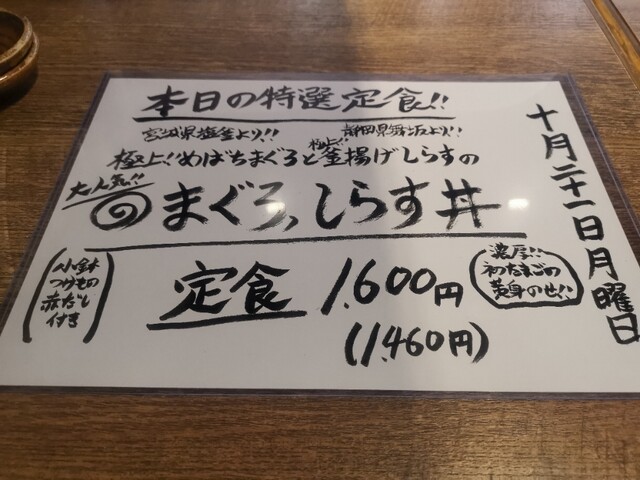 本日の特選定食!!
宮城県塩釜より!! 静岡県舞坂より!!
極上!!めばちまぐろと極上!!釜揚げしらすの
大人気!!
まぐろ、しらす丼
定食 1,600円
(1,460円)
(小鉢
つけもの
赤だし
付き)
濃厚!!
初たまごの
黄身のせ!!
十月二十一日月曜日